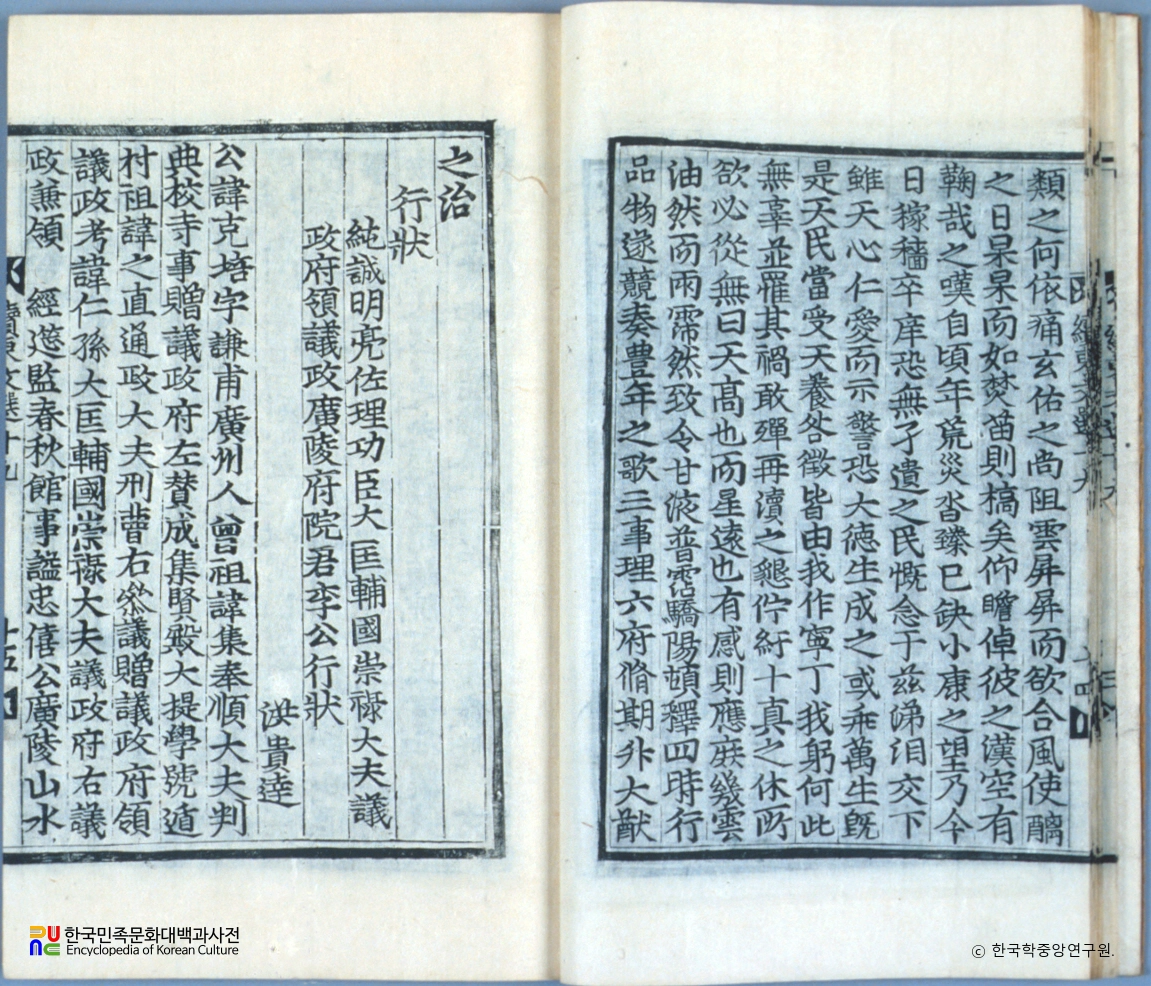 類之何依痛玄佑之尚阻雲屏屏而欲合風使醨
之日杲杲而如焚菑則槁矣仰瞻倬彼之漢空有
鞠哉之嘆自頃年荒災沓臻巳缺小康之望乃今
日稼穡卒庠恐無孑遺之民慨念于玆涕泪交下
雖天心仁愛而示警恐大德生成之或乖萬生旣
是天民當受天養咎徵皆由我作寧丁我躬何此
無辜並罹其禍敢殫再瀆之懇佇紓十眞之休所
欲必從無曰天髙也而星遠也有感則應庶幾雲
油然而雨霈然致令甘液普霑驕陽頓釋四時行
品物遂競奏豊年之歌三事理六府脩期升大猷
之治
行狀
純誠明亮佐理功臣大匡輔國崇祿大夫議
政府領議政廣陵府院君李公行狀
洪貴達
公諱克培字謙甫廣州人曾祖諱集奉順大夫判
典校寺事贈議政府左賛成集賢殿大提學號遁
村祖諱之直通政大夫刑曹右叅議贈議政府領
議政考諱仁孫大匡輔國崇祿大夫議政府右議
政兼領 經筵監春秋館事謚忠僖公廣陵山水
十五
한국민족문화대백과사전
Encyclopedia of Korean Culture
© 한국학중앙연구원.